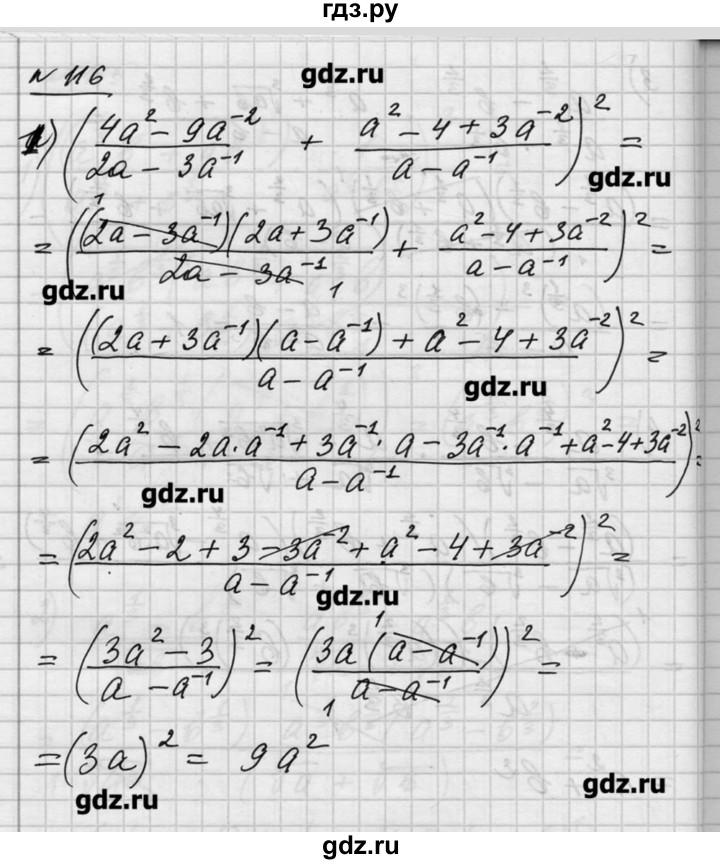 гдз.ру
N 116
gdz.ru
1) ((4a² − 9a⁻²)/(2a − 3a⁻¹) + (a² − 4 + 3a⁻²)/(a − a⁻¹))² =
gdz.ru
= (((2a − 3a⁻¹)(2a + 3a⁻¹))/(2a − 3a⁻¹) + (a² − 4 + 3a⁻²)/(a − a⁻¹))² =
gdz.ru
= (((2a + 3a⁻¹)(a − a⁻¹) + a² − 4 + 3a⁻²)/(a − a⁻¹))² =
gdz.ru
= ((2a² − 2a·a⁻¹ + 3a⁻¹·a − 3a⁻¹·a⁻¹ + a² − 4 + 3a⁻²)/(a − a⁻¹))² =
gdz.ru
= ((2a² − 2 + 3 − 3a⁻² + a² − 4 + 3a⁻²)/(a − a⁻¹))² =
gdz.ru
= ((3a² − 3)/(a − a⁻¹))² = ((3a(a − a⁻¹))/(a − a⁻¹))² =
= (3a)² = 9a²
gdz.ru
gdz.ru
gdz.ru